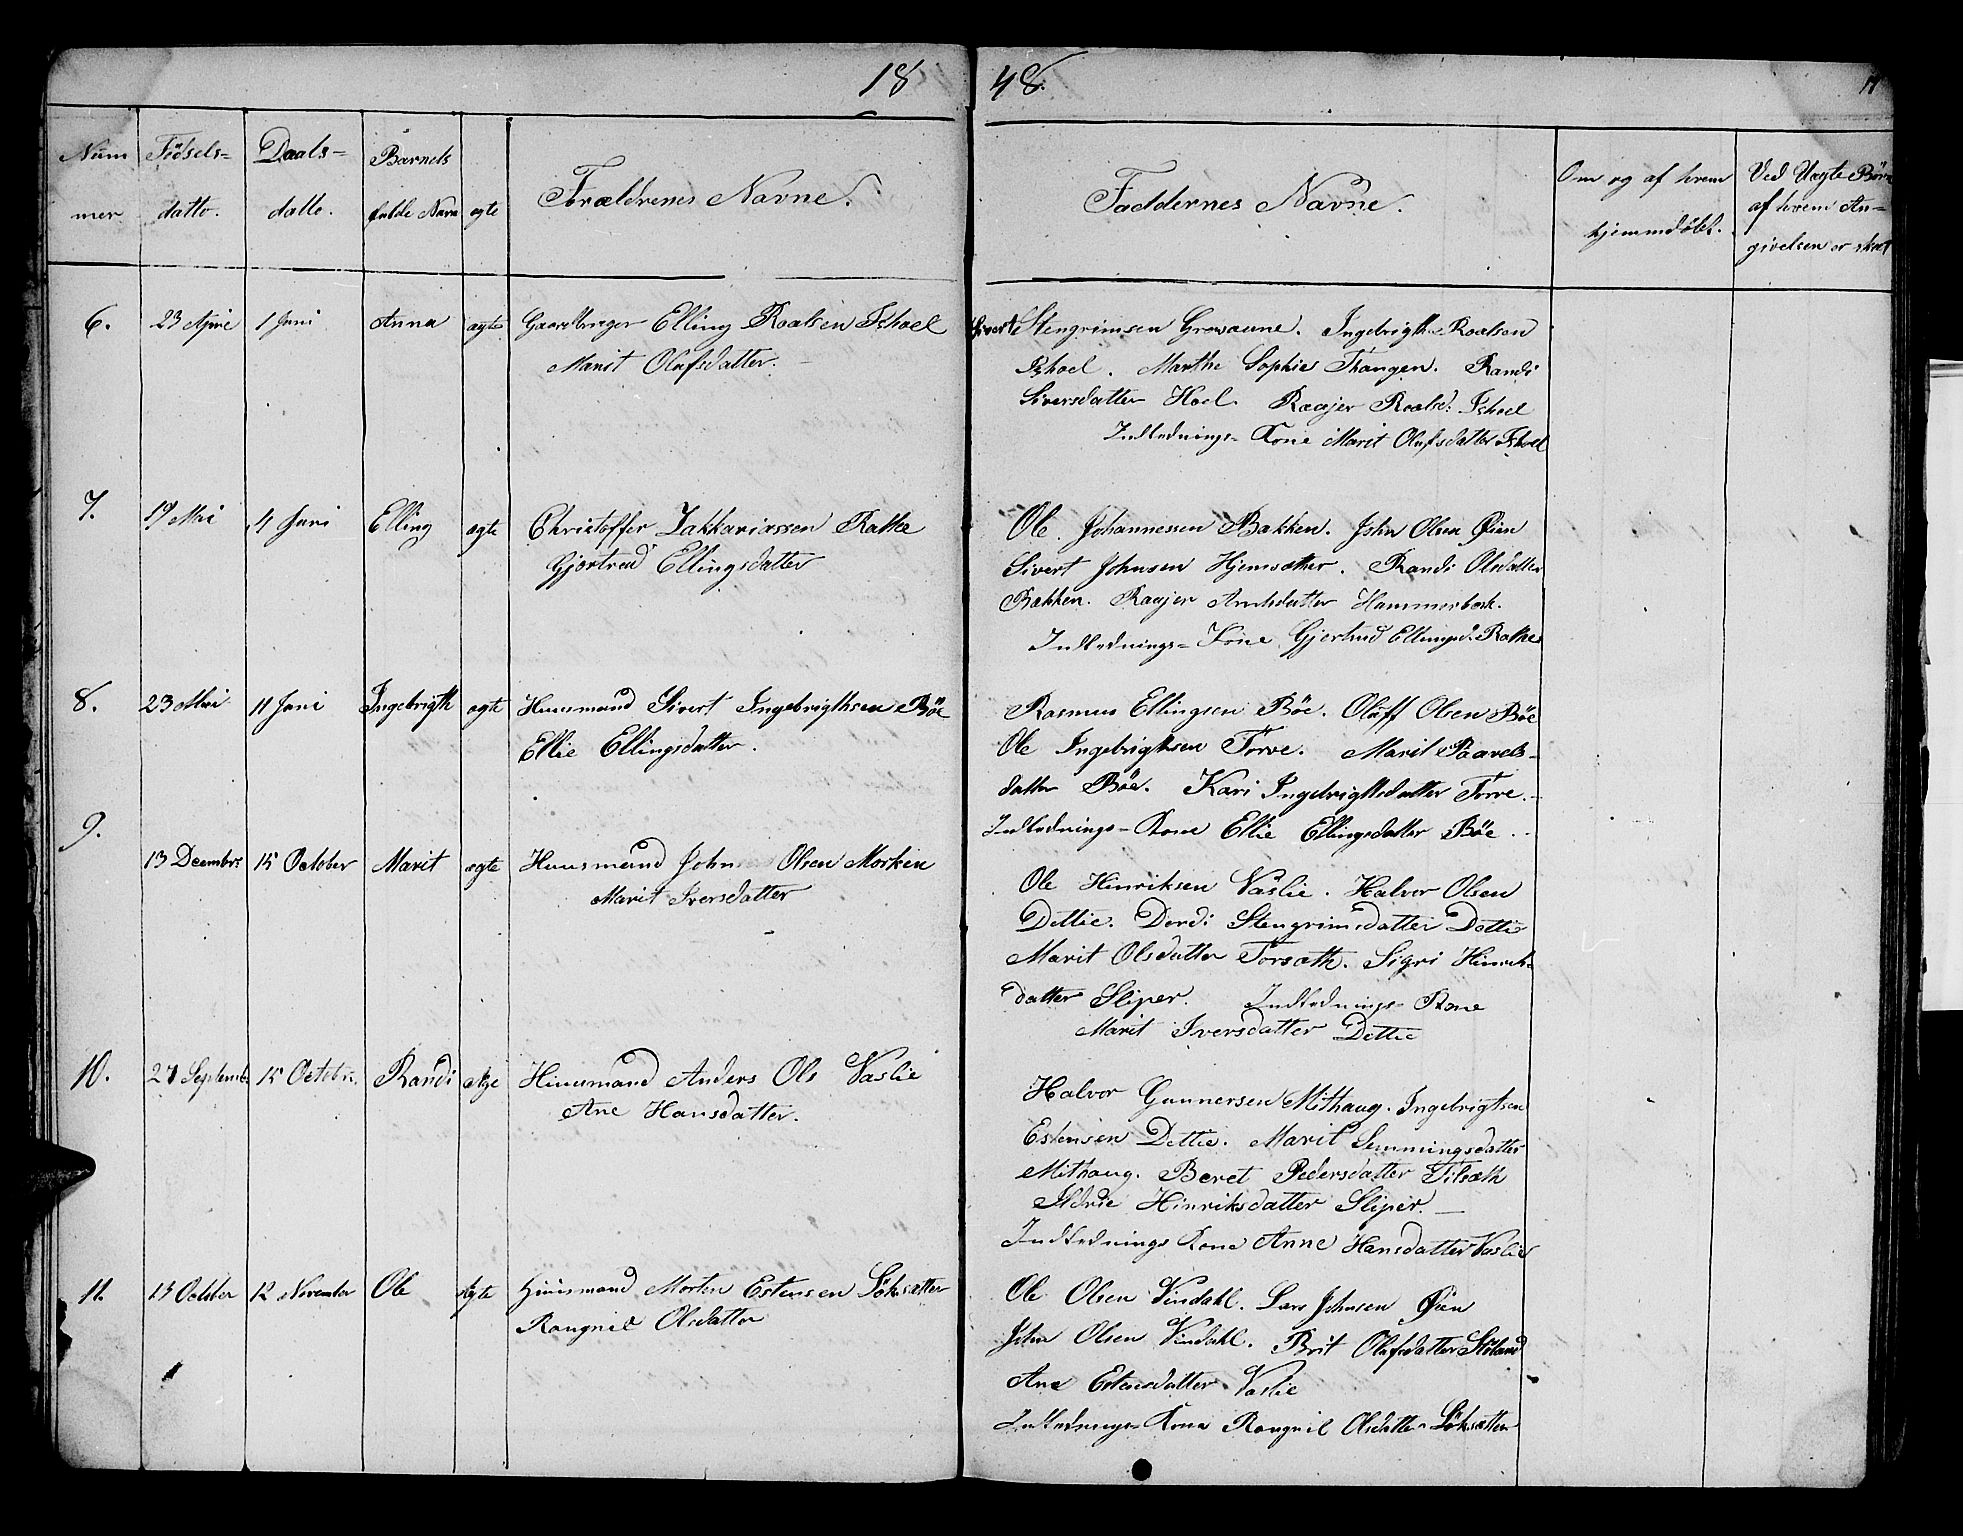 1848.
Num
mer
Fødsels=
datto.
Daabs-
datto.
Barnets
fulde Navn
ægte
Forældrenes Navne.
Faddernes Navne.
Om og af hvem
hjemmedøbt.
Ved Uægte Børn
af hvem An-
givelsen er skeet
6. 23 April 1 Juni Anna ægte Gaardbruger Elling Roalsen Ishoel
Marit Olufsdatter.
Sivert Stengrimsen Grøvaune. Ingebrigt Roalsen
Ishoel. Marthe Sophie Thangen. Randi
Siversdatter Hoel. Raajer Roalsd: Ishoel
Indlednings- Kone Marit Olufsdatter Ishoel
7. 19 Mai 4 Juni Elling ægte Christoffer Zakkariassen Rathe
Gjertrud Ellingsdatter
Ole Johannessen Bakken. John Olsen Øien
Sivert Johnsen Hjemsæther. Randi Olsdatter
Bakken. Raajer Arntsdatter Hammerbæk.
Indlednings= Kone Gjertrud Ellingsd. Rathe
8. 23 Mai 11 Juni Ingebrigth ægte Huusmand Sivert Ingebrigthsen Böe
Ellie Ellingsdatter.
Rasmus Ellingsen Böe. Oluff Olsen Böe
Ole Ingebrigtsen Torve. Marit Paavels-
datter Böe. Kari Ingebrigtsdatter Torve.
Indlednings- Kone Ellie Ellingsdatter Böe.
9. 13 Decembr: 15 October Marit ægte Huusmand John Olsen Morken
Marit Iversdatter
Ole Hinriksen Vaslie. Halvor Olsen
Dettie. Dordi Stengrimsdatter Dettie
Marit Olsdatter Torsæth. Sigri Hinriks-
datter Sliper. Indlednings- Kone
Marit Iversdatter Dettie
10. 27 Septemb. 15 Octobr. Randi Huusmand Anders Ols Vaslie
Ane Hansdatter.
Halvor Gunnersen Mithaug. Ingebrigtsen
Estensen Dettie. Marit Semmingsdatter
Mithaug. Beret Pedersdatter Tilsæth
Ildrie Hinriksdatter Sliper.
Indlednings Kone Anne Hansdatter Vaslie
11. 13 October 12 November Ole Ægte Huusmand Morten Estensen Löksætter
Rangnil Olsdatter
Ole Olsen Vindahl. Lars Johnsen Øien
John Olsen Vindahl. Brit Olufsdatter
Ane Estensdatter Vaslie
Indlednings- Kone Rangnil Olsdatter Löksætter